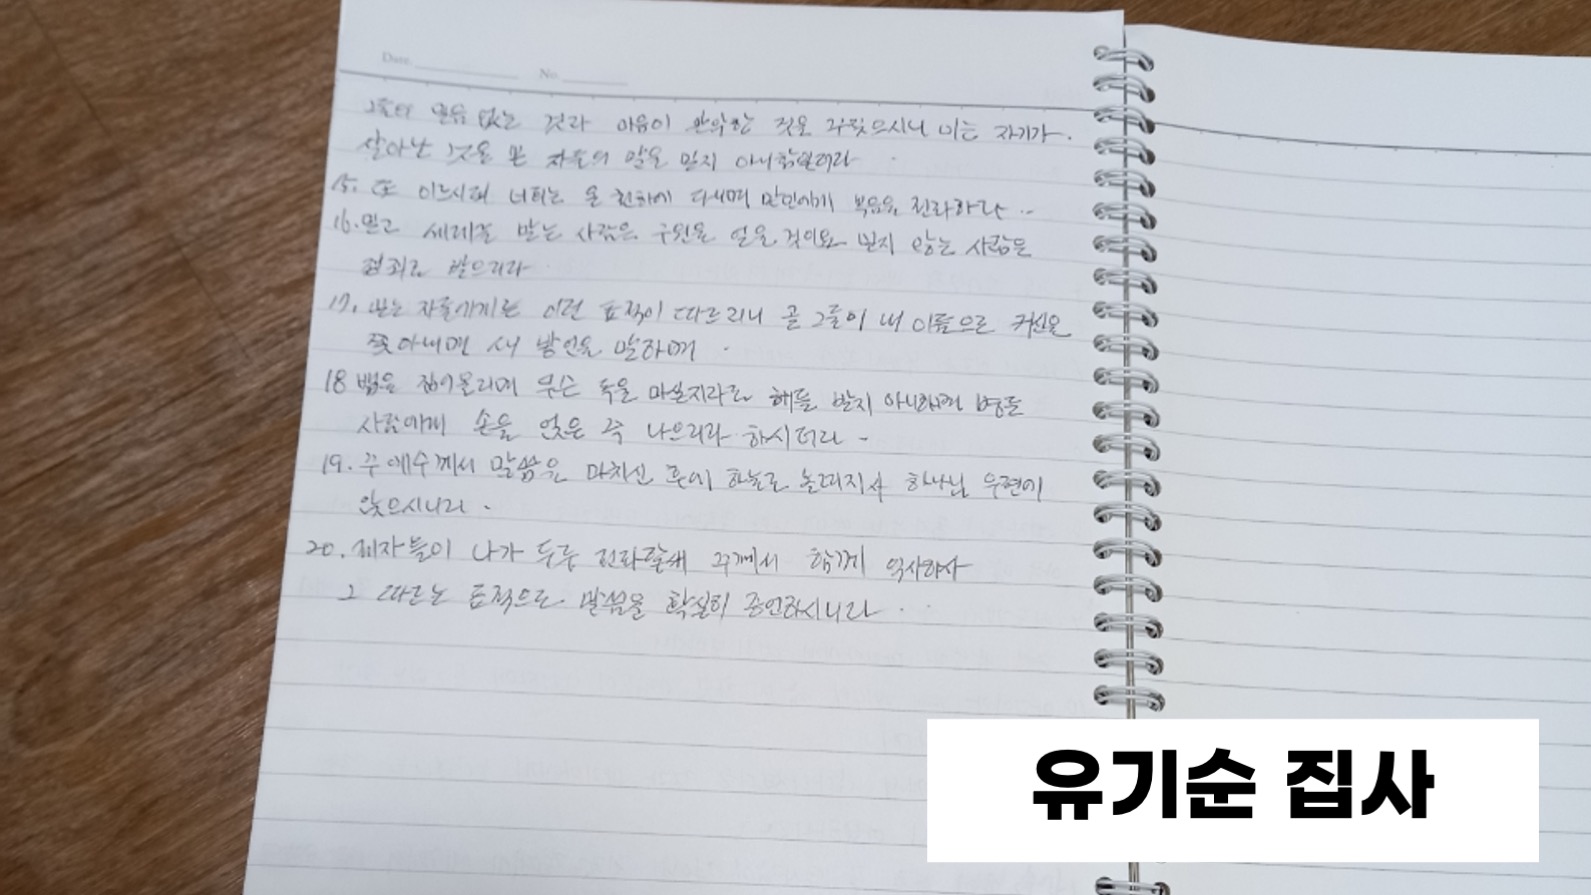 Date No
그들의 믿음 없는 것과 마음이 완악한 것을 꾸짖으시니 이는 자기가
살아난 것을 본 자들의 말을 믿지 아니함일러라
15. 또 이르시되 너희는 온 천하에 다니며 만민에게 복음을 전파하라
16. 믿고 세례를 받는 사람은 구원을 얻을 것이요 믿지 않는 사람은
정죄를 받으리라
17. 믿는 자들에게는 이런 표적이 따르리니 곧 그들이 내 이름으로 귀신을
쫓아내며 새 방언을 말하며
18 뱀을 집어올리며 무슨 독을 마실지라도 해를 받지 아니하며 병든
사람에게 손을 얹은 즉 나으리라 하시더라
19. 주 예수께서 말씀을 마치신 후에 하늘로 올려지사 하나님 우편에
앉으시니라.
20. 제자들이 나가 두루 전파할새 주께서 함께 역사하사
그 따르는 표적으로 말씀을 확실히 증언하시니라
유기순 집사